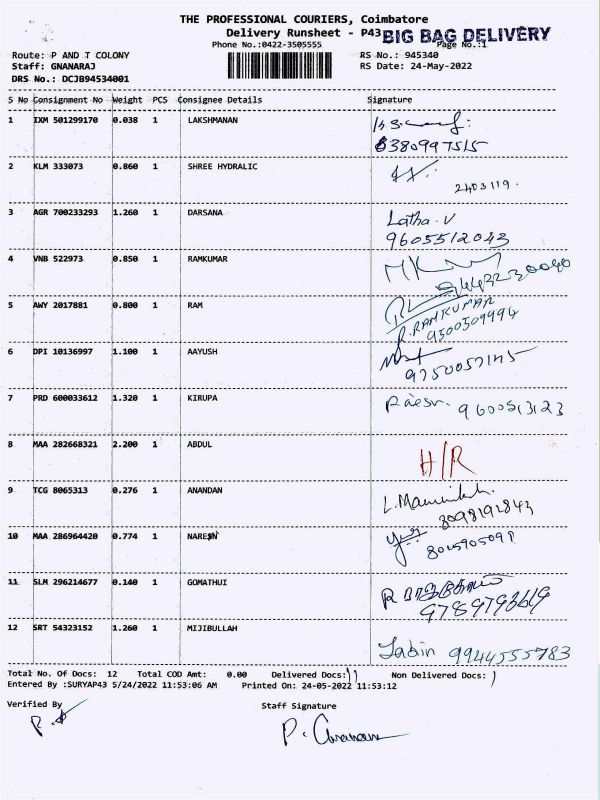 THE PROFESSIONAL COURIERS, Coimbatore
Delivery Runsheet - P43 BIG BAG DELIVERY
Phone No.:0422-3505555 Page No.:1
Route: P AND T COLONY RS No.: 945340
Staff: GNANARAJ RS Date: 24-May-2022
DRS No.: DCJB94534001
S No Consignment No Weight PCS Consignee Details Signature
1 IXM 501299170 0.038 1 LAKSHMANAN
6380997515
2 KLM 333073 0.860 1 SHREE HYDRALIC
2403119.
3 AGR 700233293 1.260 1 DARSANA Latha.V
9605512043
4 VNB 522973 0.850 1 RAMKUMAR
5 AWY 2017881 0.800 1 RAM
R.RAMKUMAR
9500509994
6 DPI 10136997 1.100 1 AAYUSH
9750057145
7 PRD 600033612 1.320 1 KIRUPA
9600513123
8 MAA 282668321 2.200 1 ABDUL H/R
9 TCG 8065313 0.276 1 ANANDAN
8098192843
10 MAA 286964420 0.774 1 NARESN
11 SLM 296214677 0.140 1 GOMATHUI
9789793619
12 SRT 54323152 1.260 1 MIJIBULLAH Jabin 9944555783
Total No. Of Docs: 12 Total COD Amt: 0.00 Delivered Docs: 11 Non Delivered Docs: 1
Entered By :SURYAP43 5/24/2022 11:53:06 AM Printed On: 24-05-2022 11:53:12
Verified By Staff Signature